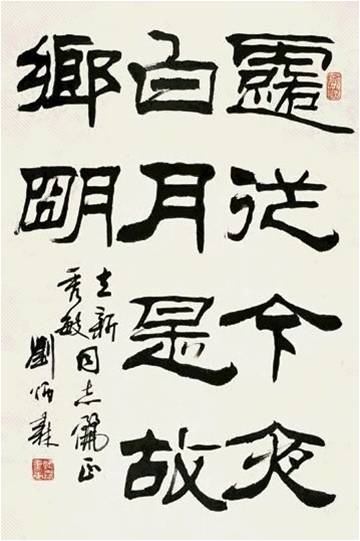 露從今夜
白月是故
鄉朙
立新
秀敏
同志儷正
劉炳森